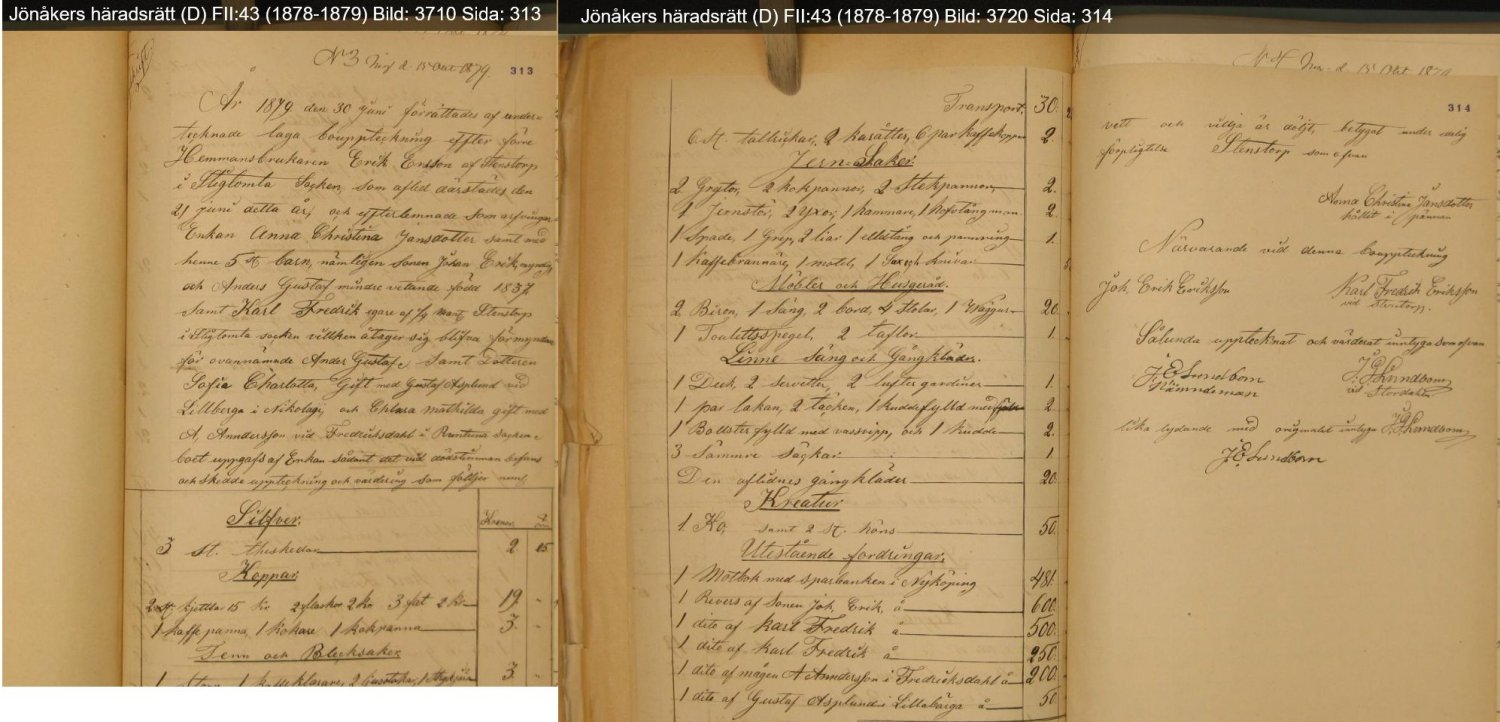 Jönåkers häradsrätt (D) FII:43 (1878-1879) Bild: 3710 Sida: 313
N 3 d. 15 Oct 1879.
313
År 1879 den 30 juni förrättades af under-
tecknade laga bouppteckning efter förre
Hemmansbrukaren Erik Ersson af Stenstorp
i Stigtomta Socken, som afled därstädes den
21 juni detta år, och efterlemnade som arfvingar
Enkan Anna Christina Jansdotter samt med
henne 5 st barn, nämligen sonen Johan Erik, myndig
och Anders Gustaf mindre vetande född 1857
samt Karl Fredrik egare af Stenstorp
i Stigtomta socken villken åtager sig blifva förmyndare
för ovannämnde Ander Gustaf, samt Dotteren
Sofia Charlotta, Gift med Gustaf Asplund vid
Lillberga i Nikolaj, och Chlara mathilda gift med
A. Anndersson vid Fredriksdahl i Runtuna Socken.
boet uppgafs af Enkan sådant det vid dödstimman befans
och skedde uppteckning och värdering som följer neml.
Silfver.
Kronor
3 st. theskedar 2 15
Koppar
2 st. kjettlar 15 kr 2 flaskor 2 kr 3 fat 2 kr 19 -
1 kaffe panna, 1 kokare 1 kokpanna 3 -
Tenn och Blecksaker
1 1 kaffeklarare, 2 Ljusstakar, 1 3 -
Jönåkers häradsrätt (D) FII:43 (1878-1879) Bild: 3720 Sida: 314
Transport. 30.
6 st. tallrickar, 2 karåtter, 6 par kaffekoppar 2.
Jern-Saker.
2 Grytor, 2 kokpannor, 2 Stekpannor, 2.
1 Jernstör, 2 Yxor, 1 hammare, 1 Hofstång 2.
1 Spade, 1 Grep, 2 liar 1 eldstång och pannring 1.
1 Kaffebrännare, 1 1 Sax och
Möbler och Husgeråd.
2 Biron, 1 Säng, 2 bord, 4 Stolar, 1 Väggur 20.
1 Toalettsspegel, 2 taflor 1.
Linne Säng och Gångkläder.
1 Duck, 2 servetter, 2 lufter gardiner 1.
1 par lakan, 2 täcken, 1 kudde fylld med 2.
1 Bollster fylld med vassvipp, och 1 kudde 2.
3 Sämmre Säckar 1
Den aflidnes gångkläder 20.
Kreatur
1. Ko, samt 2 st. höns 50.
Utestående fordringar.
1 Motbok med sparbanken i Nyköping 481.
1 Revers af Sonen Joh. Erik, å 600.
1 dito af Karl Fredrik å 500.
1 dito af Karl Fredrik å 250.
1 dito af mågen A Anndersson i Fredriksdahl å 200.
1 dito af Gustaf Asplund i Lillabärga å 50
N 4 d. 15 Okt. 1879
314
vett och villja är döljt, betygat under edelig
förpligtelse Stenstorp som ofvan
Anna Christine Jansdotter
hållit i pännan
Närvarande vid denna bouppteckning
Joh Erik Eriksson Karl Fredrik Eriksson
vid Stenstorp.
Sålunda upptecknat och värderat inntyga som ofvan
J. E. Sundbom J. P. Lundbom
Nämndeman vid Stordahl
Lika lydande med originalet inntyga J P Lundbom
J. E. Sundbom